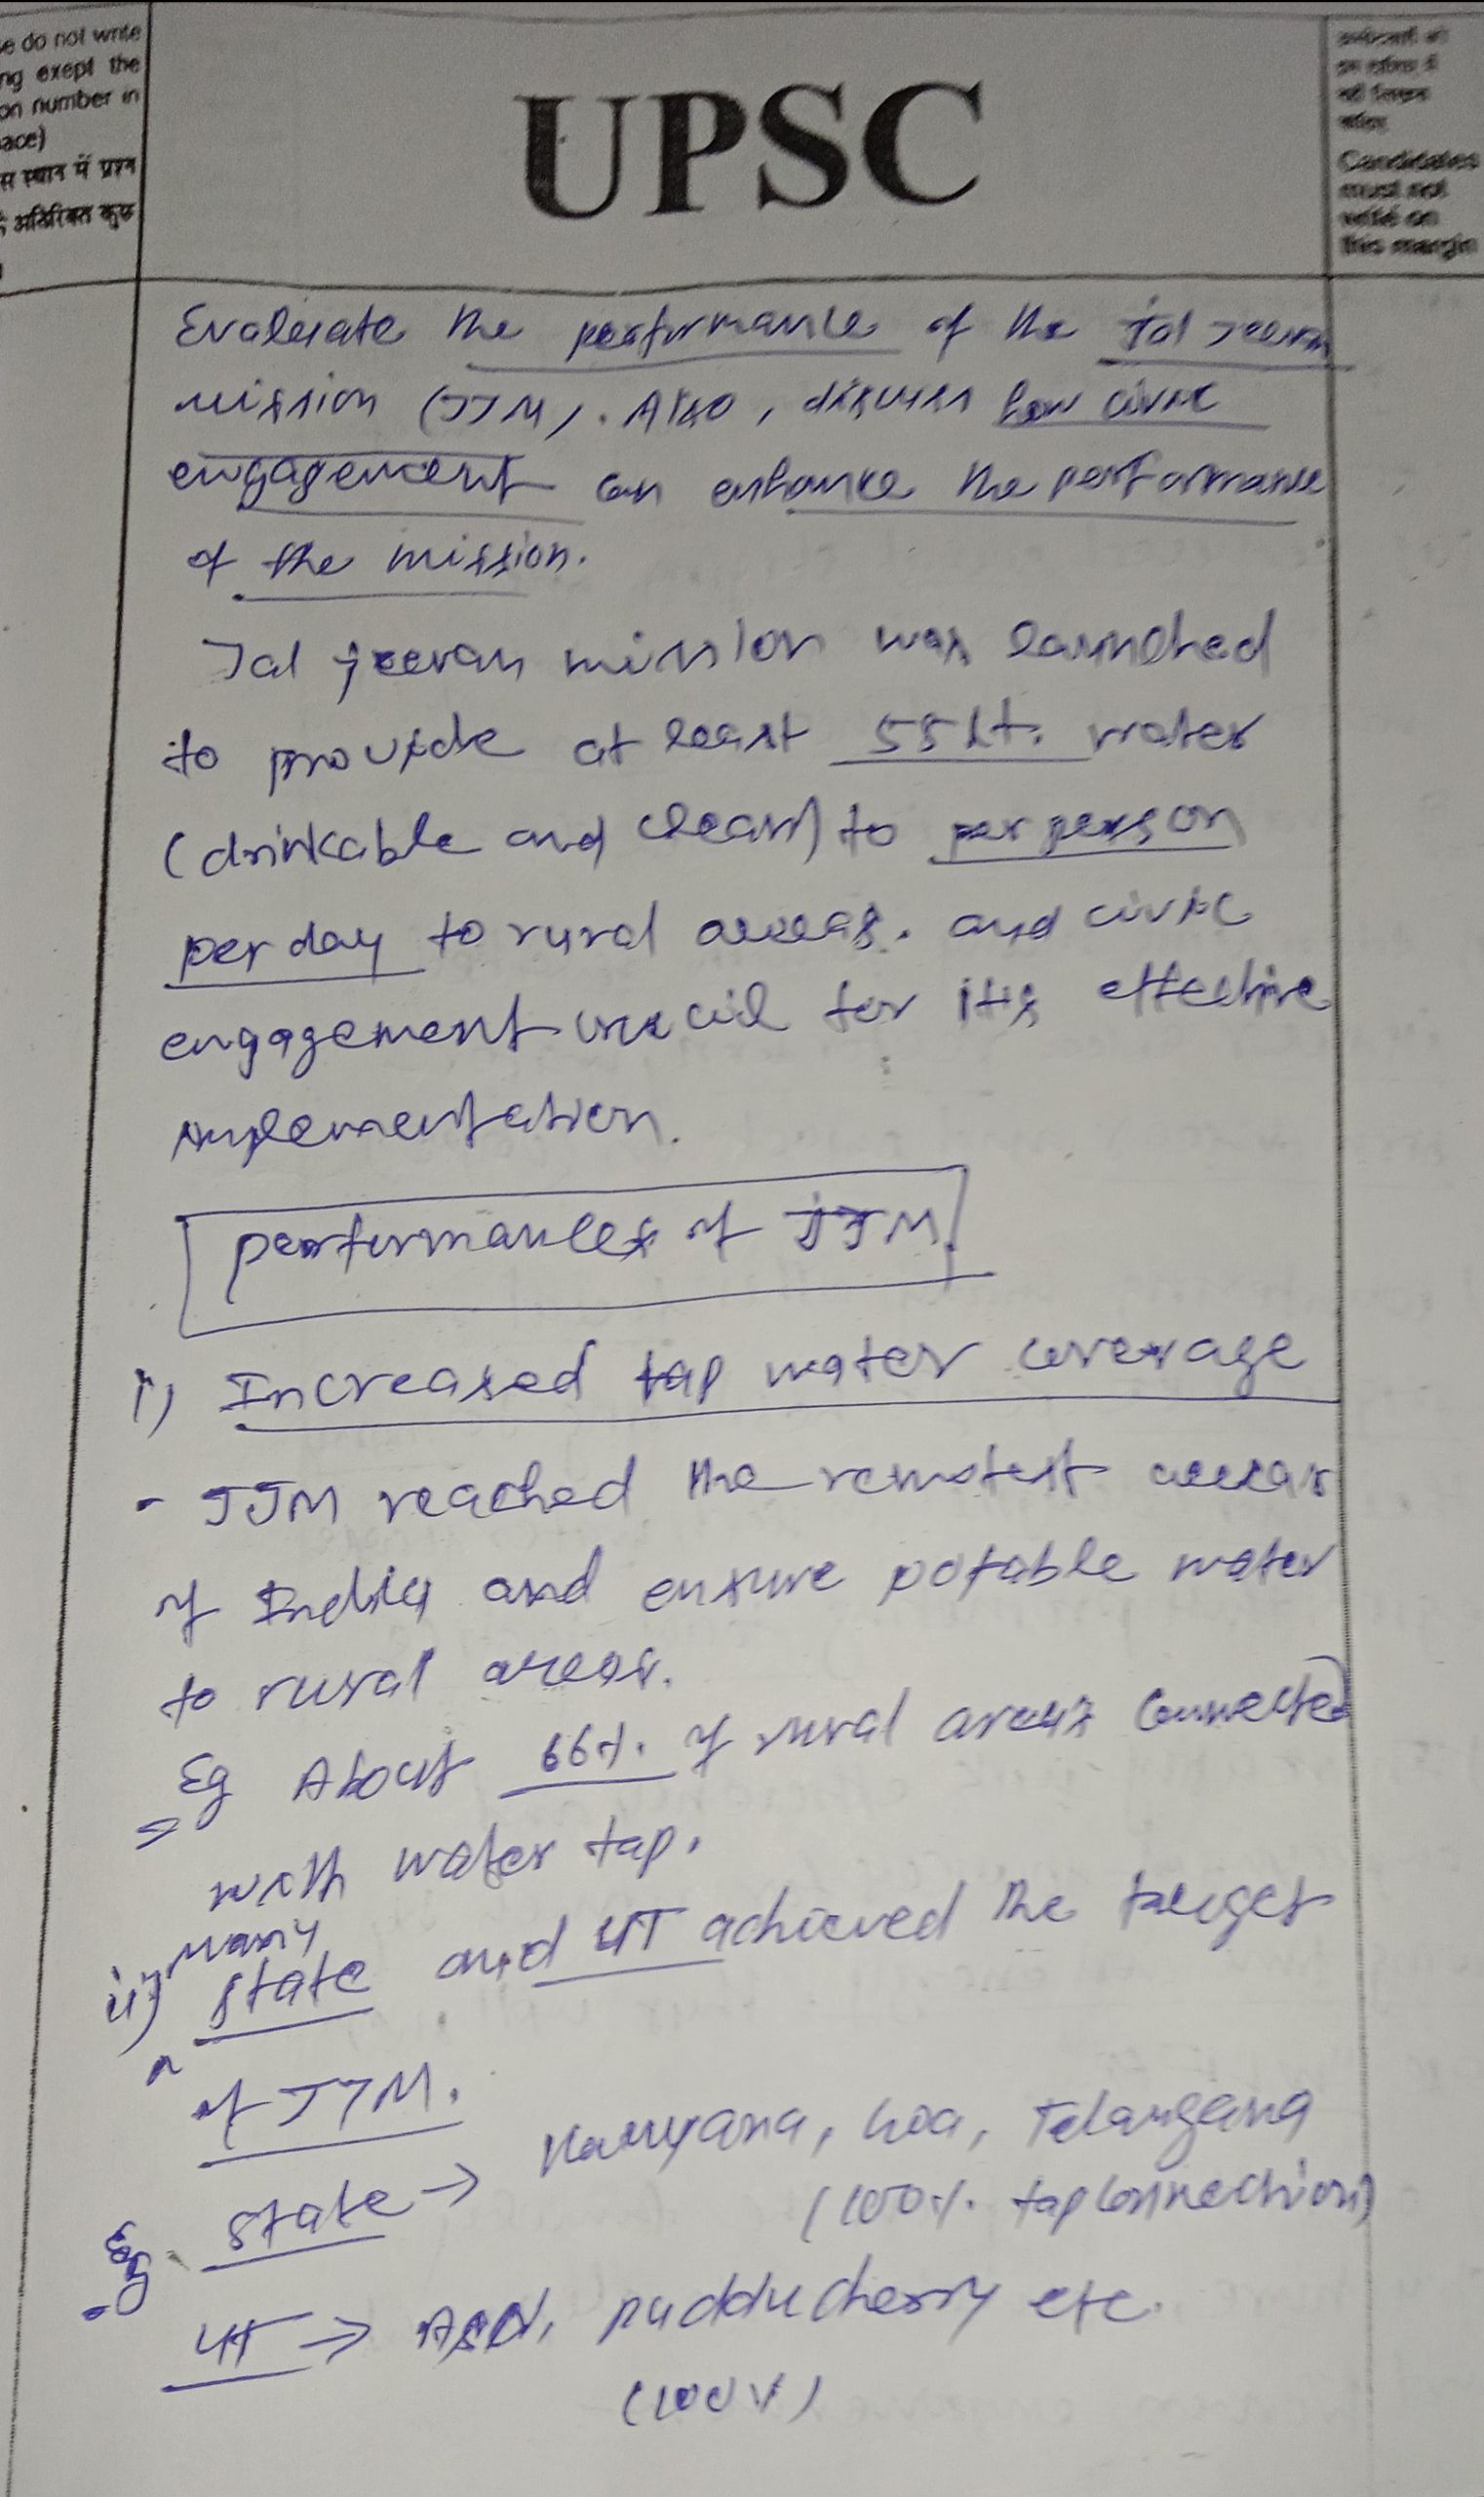 se do not write
ng exept the
on number in
ace)
स स्थान में प्रश्न
अतिरिक्त कुछ
UPSC
Candidates
must not
write on
this margin
Evaluate the performance of the Jal Jeevan
mission (JJM). Also, discuss how civic
engagement can enhance the performance
of the mission.
Jal jeevan mission was launched
to provide at least 55 Lt. water
(drinkable and clean) to per person
per day to rural areas. and civic
engagement for its effective
implementation.
performances of JJM
i) Increased tap water coverage
- JJM reached the remotest areas
of India and ensure potable water
to rural areas.
Eg About 66%. of rural areas connected
with water tap.
many
ii) state and UT achieved the target
of JJM.
Eg. state → Harryana, Goa, Telangana
(100%. tap connection)
UT → pudducherry etc.
(100%)